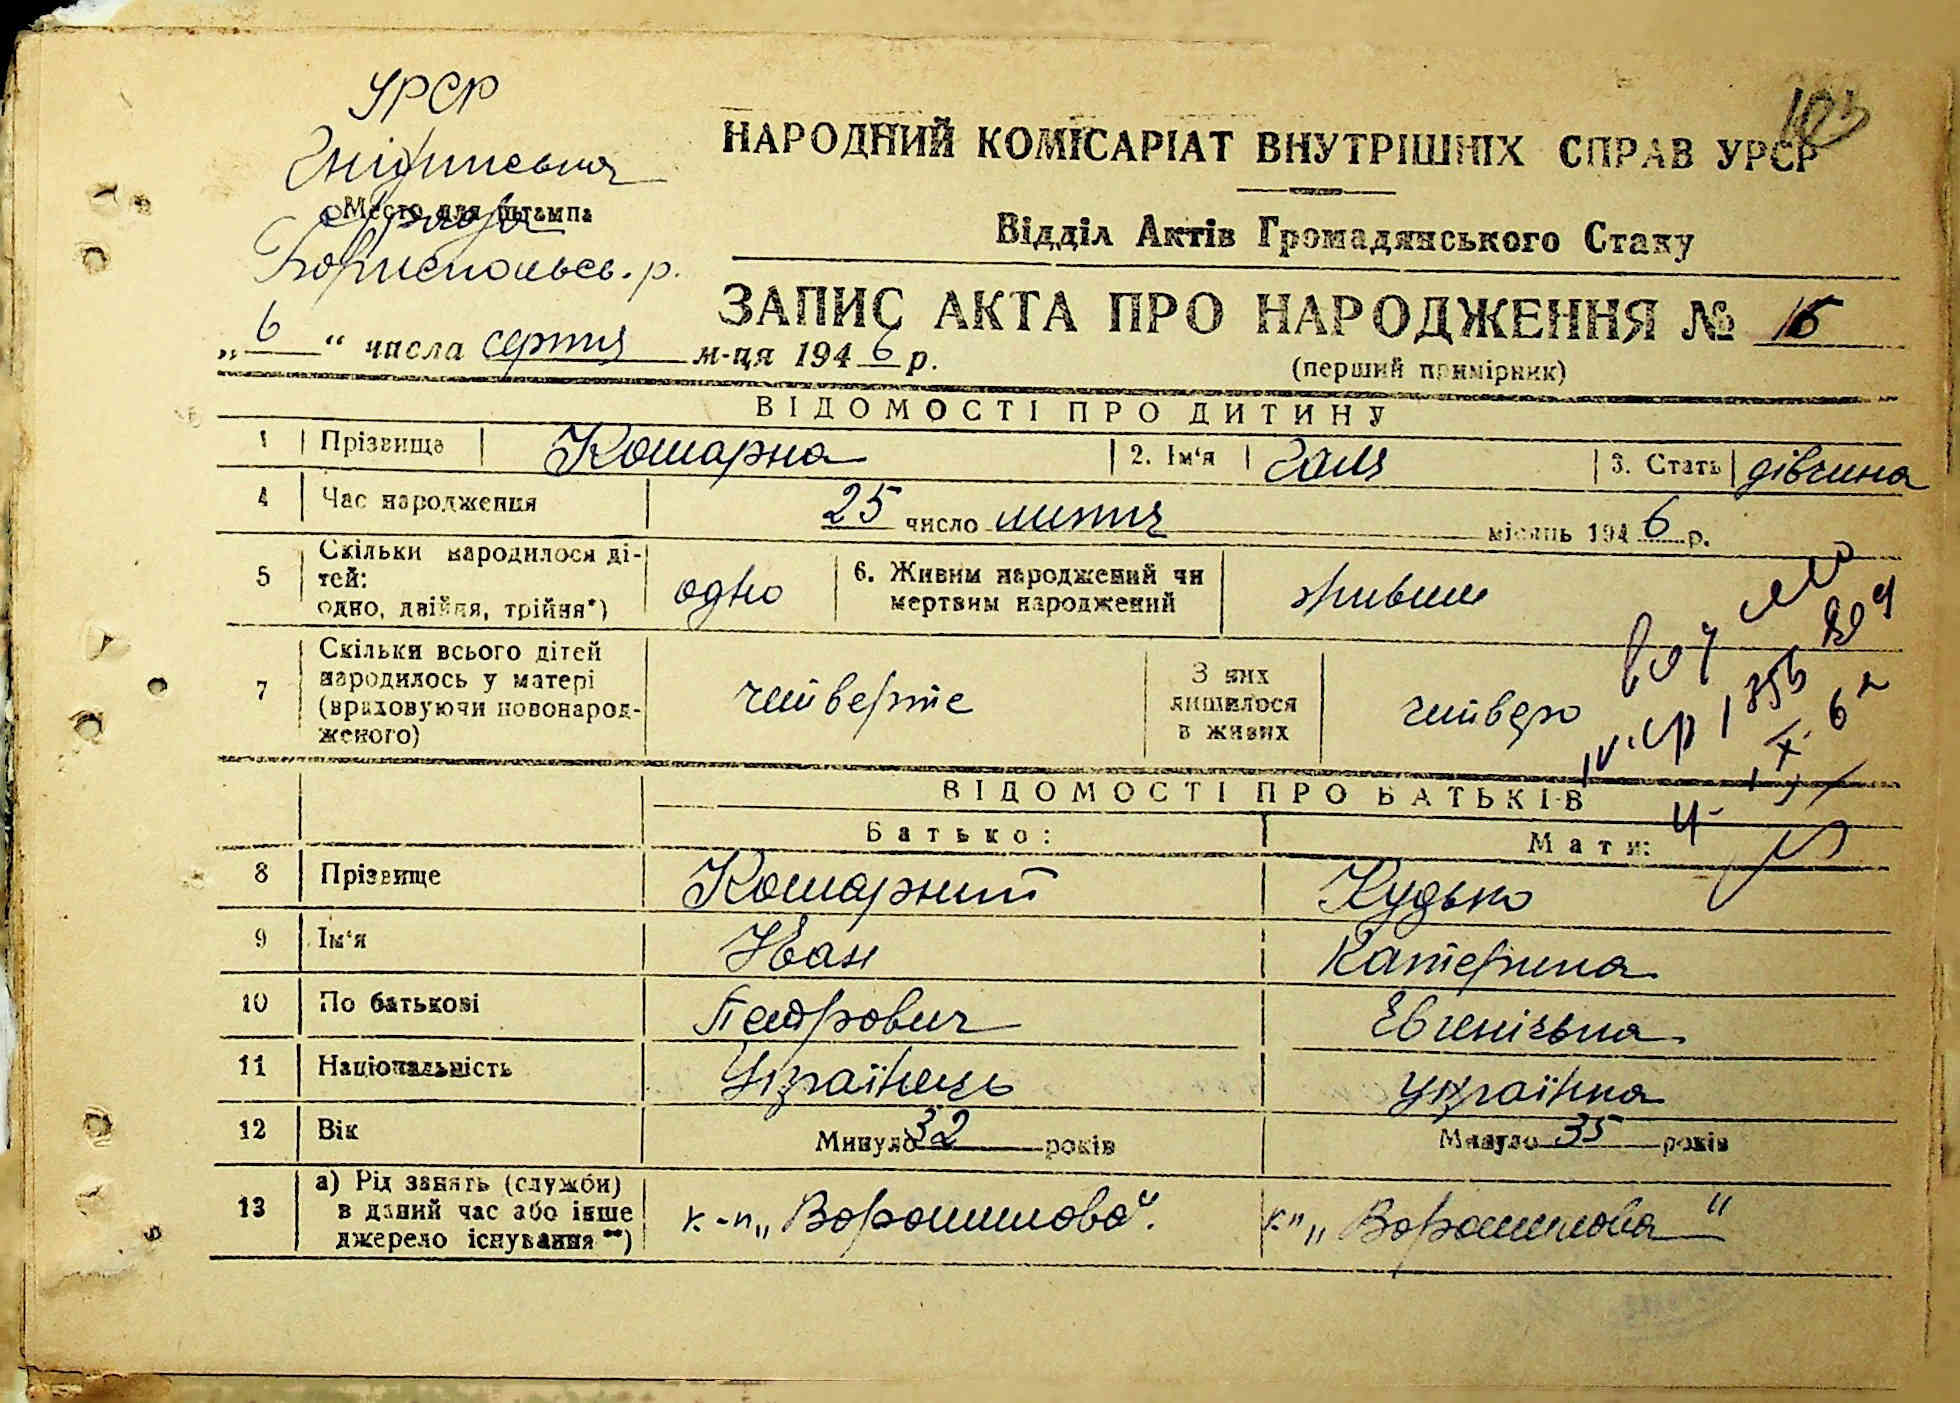 УРСР
Гнідинська
Место для штампа
с/рада
Бориспольсь. р.
103
НАРОДНИЙ КОМІСАРІАТ ВНУТРІШНІХ СПРАВ УРСР
Відділ Актів Громадянського Стану
ЗАПИС АКТА ПРО НАРОДЖЕННЯ № 16
„6“ числа серпня м-ця 1946 р.
(перший примірник)
ВІДОМОСТІ ПРО ДИТИНУ
1 Прізвище Кошарна 2. Ім'я Галя 3. Стать дівчина
4 Час народження 25 число липня місяць 1946 р.
5 Скільки народилося ді-
тей:
одно, двійня, трійня*) одно 6. Живим народжений чи
мертвим народжений живим
7 Скільки всього дітей
народилось у матері
(враховуючи новонарод-
женого) четверте З них
лишилося
в живих четверо
ВІДОМОСТІ ПРО БАТЬКІВ
Батько: Мати:
8 Прізвище Кошарний Кудько
9 Ім'я Іван Катерина
10 По батькові Петрович Євгенівна
11 Національність Українець Українка
12 Вік Минуло 32 років Минуло 35 років
13 а) Рід занять (служби)
в даний час або інше
джерело існування**) к-п „Ворошилова“. кп „Ворошилова“